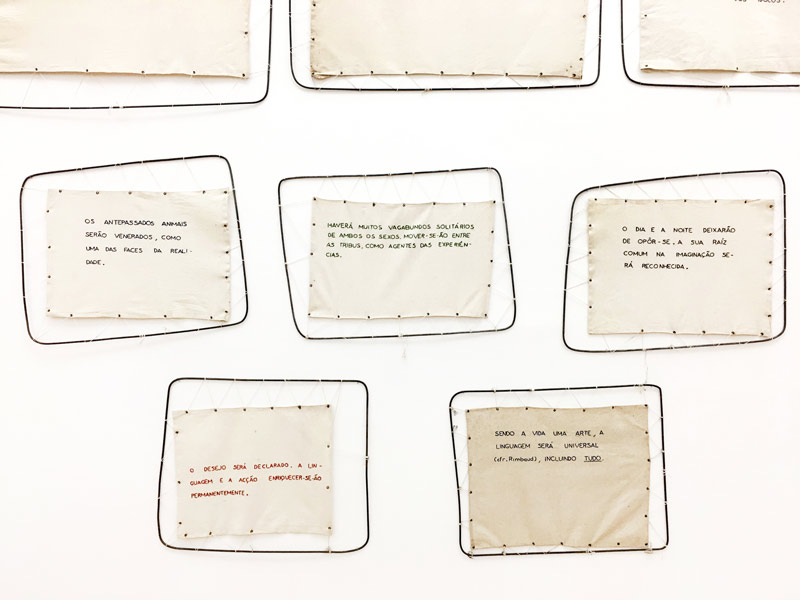 OS ANTEPASSADOS ANIMAIS
SERÃO VENERADOS, COMO
UMA DAS FACES DA REALI-
DADE.
HAVERÁ MUITOS VAGABUNDOS SOLITÁRIOS
DE AMBOS OS SEXOS. MOVER-SE-ÃO ENTRE
AS TRIBUS, COMO AGENTES DAS EXPERIÊN-
CIAS.
O DIA E A NOITE DEIXARÃO
DE OPÔR-SE. A SUA RAÍZ
COMUM NA IMAGINAÇÃO SE-
RÁ RECONHECIDA.
O DESEJO SERÁ DECLARADO. A LIN-
GUAGEM E A ACÇÃO ENRIQUECER-SE-ÃO
PERMANENTEMENTE.
SENDO A VIDA UMA ARTE, A
LINGUAGEM SERÁ UNIVERSAL
(cfr. Rimbaud), INCLUINDO TUDO.